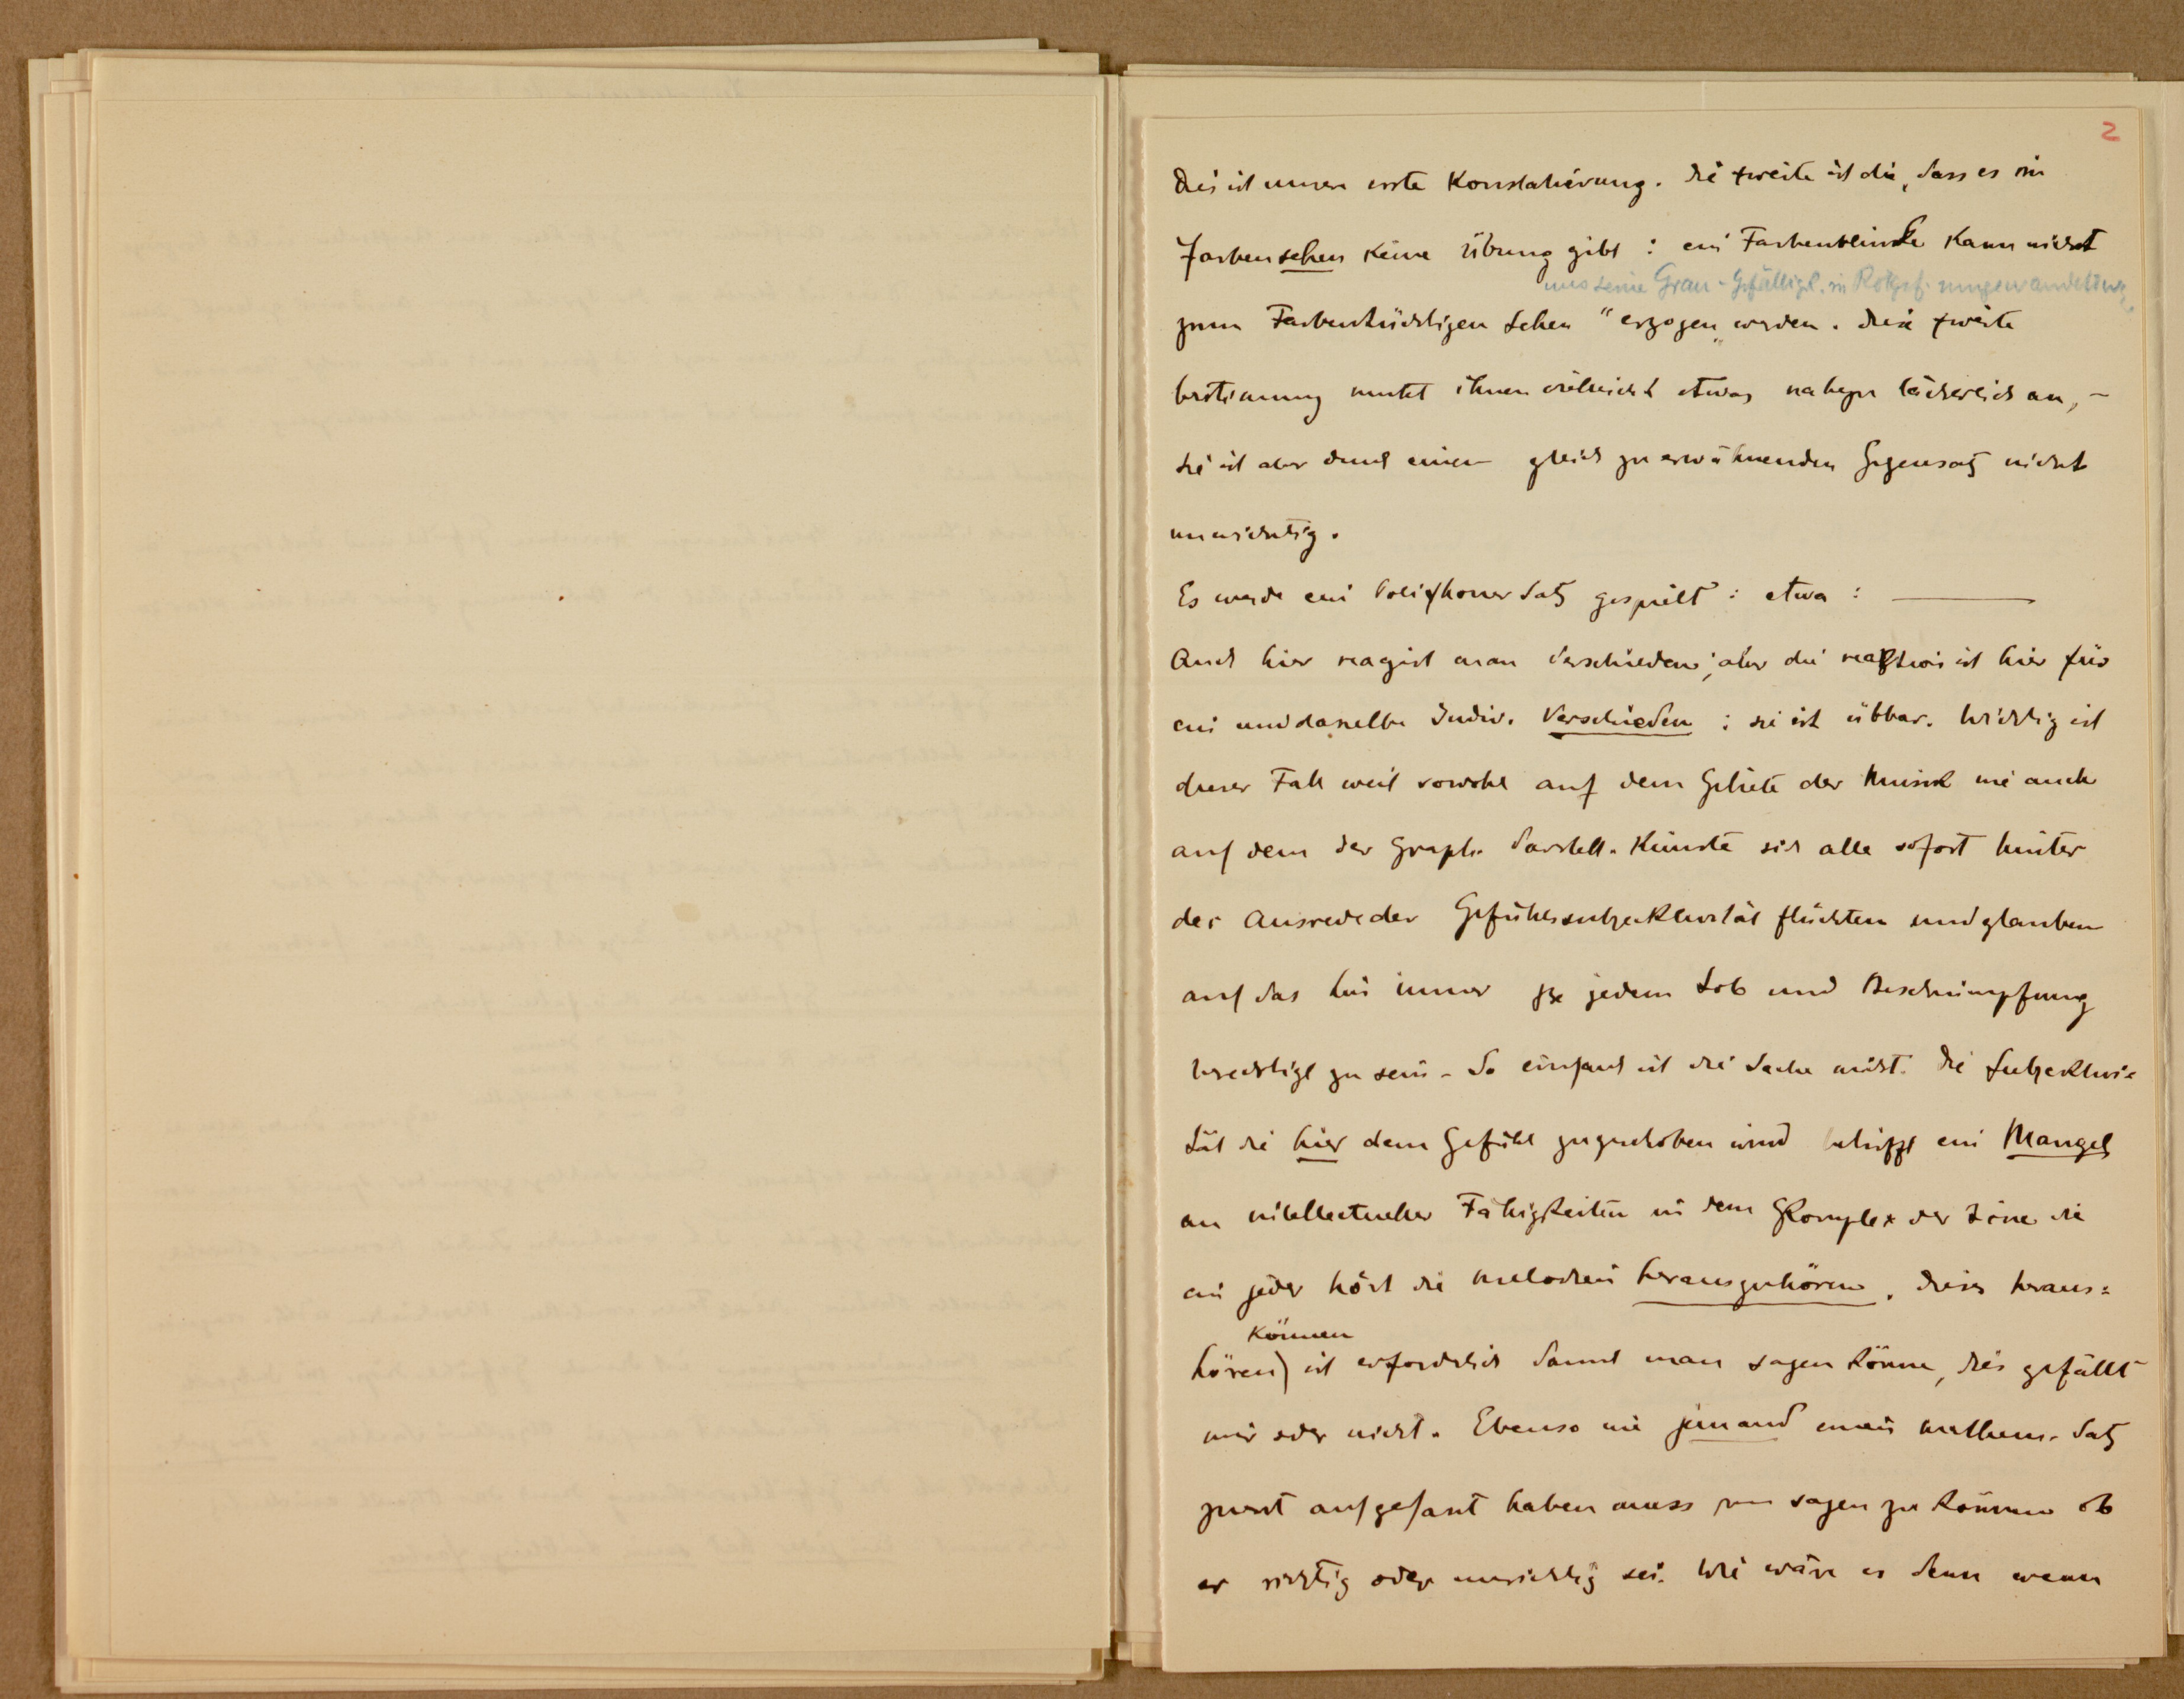 2
Dies ist unsere erste Konstatierung. Die zweite ist die, dass es im
Farbensehen keine Übung gibt: ein Farbenblinde kann nicht
und seine Grau-Gefälligk. in Rotgef. umgewandelt
zum Farbentüchtigen Sehen "erzogen" werden. Diese zweite
bestimmung mutet ihnen vielleicht etwas nahezu lächerlich an, -
sie ist aber durch einen gleich zu erwähnenden Gegensatz nicht
unwichtig.
Es werde ein Polifhoner Satz gespielt: etwa: ———
Auch hier reagirt man verschieden; aber die reaktion ist hier für
ein und daselbe Indiv. verschieden: sie ist übbar. Wichtig ist
dieser Fall weil sowohl auf dem Gebiete der Musik wie auch
auf dem der graph. darstell. Künste sich alle sofort hinter
der Ausrede der Gefühlssubjektivität flüchten und glauben
auf das hin immer zu jedem Lob und Beschimpfung
berechtigt zu sein - So einfach ist die Sache nicht. Die Subjektivi=
tät die hier dem Gefühl zugeschoben wird betrifft ein Mangel
an intellectueller Fähigkeiten in dem Komplex der Töne die
ein jeder hört die melodien herauszuhören. Dieses heraus=
können
hören) ist erforderlich damit man sagen könne, dies gefällt
mir oder nicht. Ebenso wie jemand einen mathem. Satz
zuerst aufgefasst haben muss um sagen zu können ob
er richtig oder unrichtig sei. Wie wäre es denn wenn